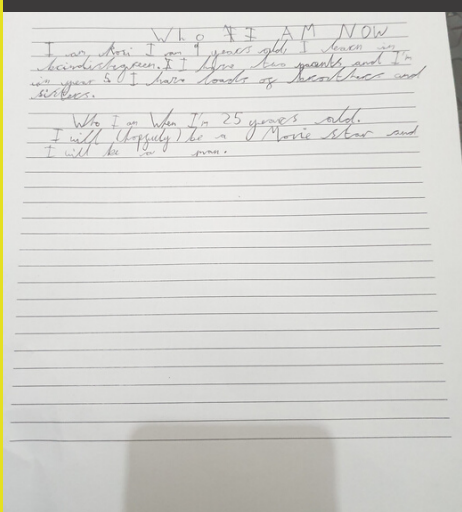 Who I AM NOW
I am I am 9 years old, I learn in
I have two and I'm
in year 5 I have loads of brothers and
sisters.
Who I am When I'm 25 years old.
I will (hopfuly) be a Movie star and
I will be a man.